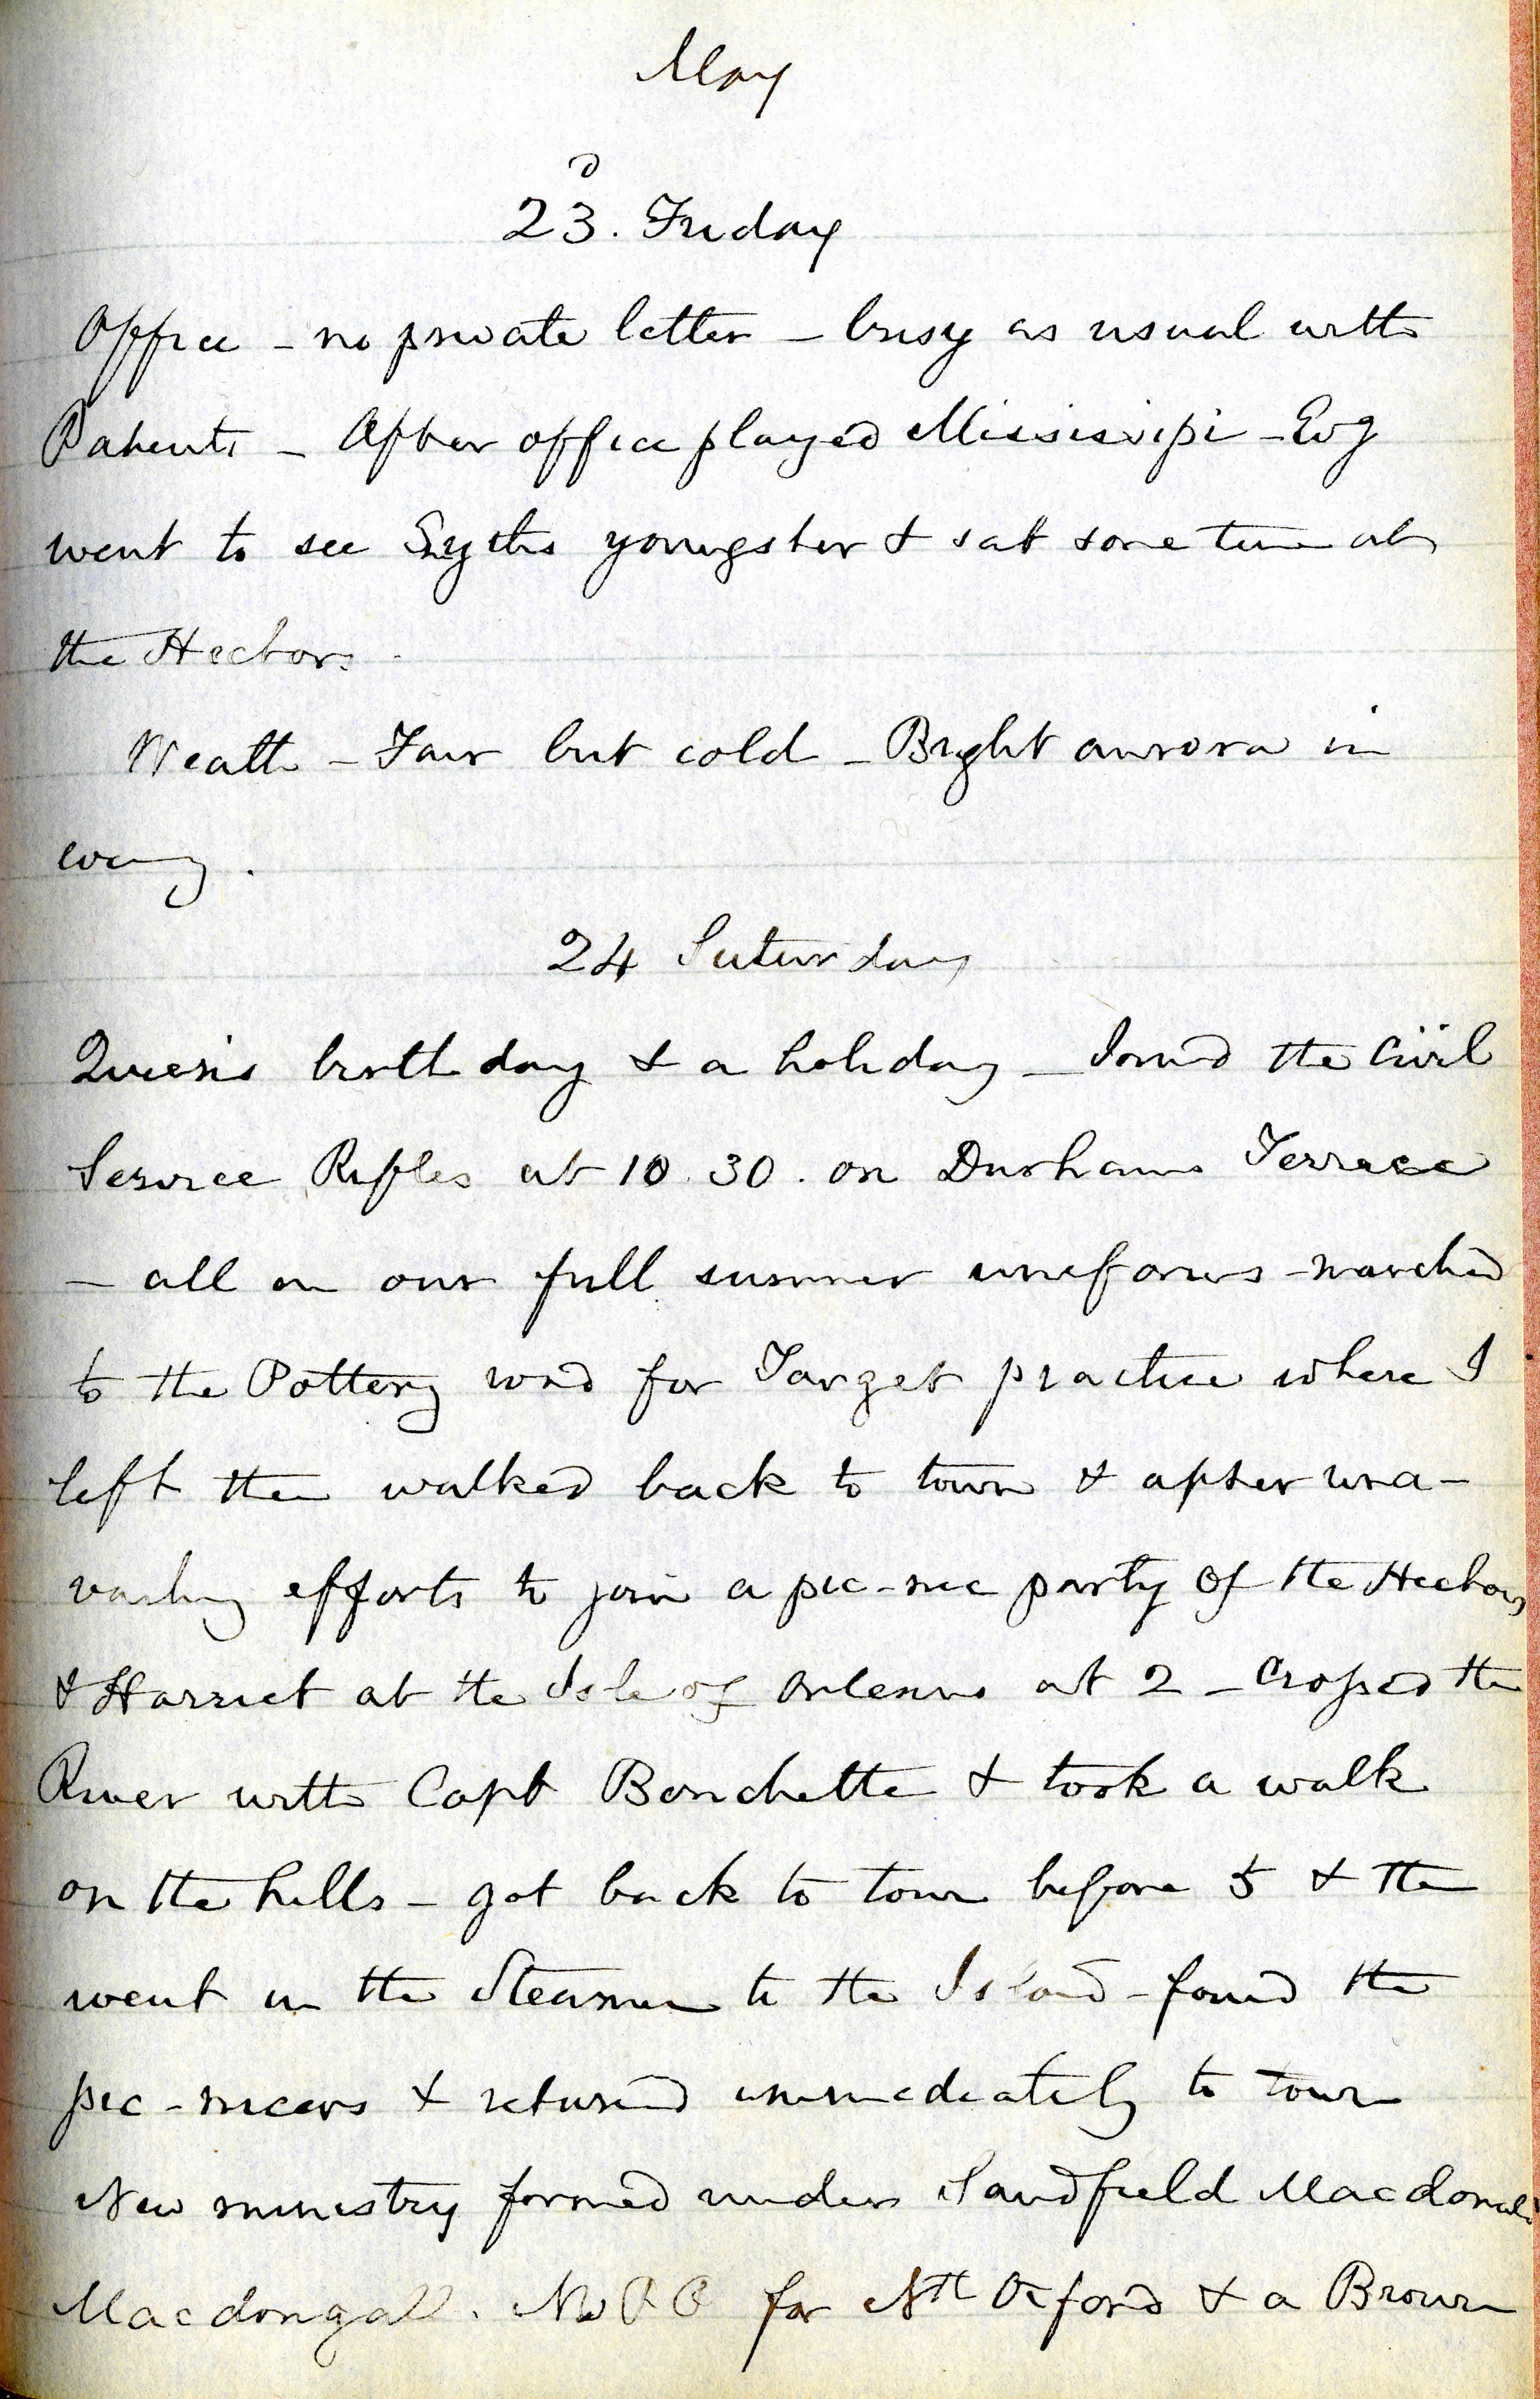 May
23. Friday
Office - no private letter - busy as usual with
Patents - After office played Mississipi - Evg
went to see youngster & sat some time at
the Hectors.
Weath - Fair but cold - Bright aurora in
evening.
24 Saturday
Queen's birthday & a holiday - Joined the Civil
Service Rifles at 10.30. on Durham Terrace
- all in our full summer uniforms - marched
to the Pottery road for Target practice where I
left them walked back to town & after una-
vailing efforts to join a pic-nic party of the Hectors
& Harriet at the Isle of Orleans at 2 - Crossed the
River with Capt Bouchette & took a walk
on the hills - got back to town before 5 & then
went in the Steamer to the Island - found the
pic-nicers & returned immediately to town
New ministry formed under Sandfield Macdonald
Macdougall. M P P for Nth Oxford & a Brown